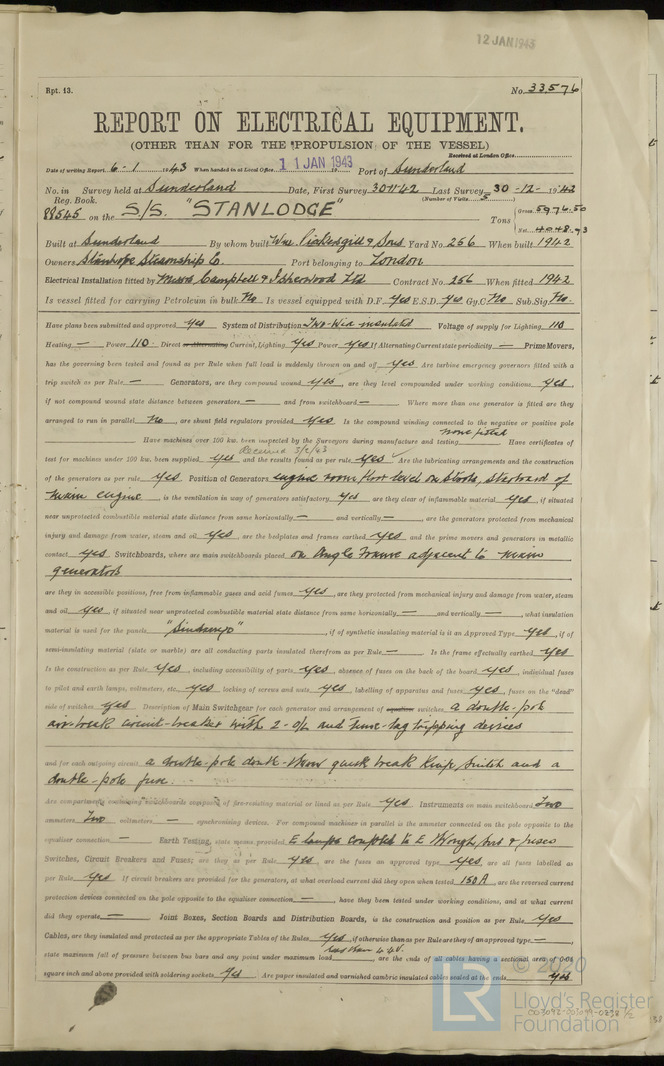 12 JAN 1943
Rpt. 13. No. 33,576
REPORT ON ELECTRICAL EQUIPMENT.
(OTHER THAN FOR THE PROPULSION OF THE VESSEL)
Received at London Office
Date of writing Report 6-1 1943 When handed in at Local Office 11 JAN 1943 Port of Sunderland
No. in Survey held at Sunderland Date, First Survey 30 11 42 Last Survey 30-12-1942
Reg. Book. (Number of Visits 5)
88545 on the S/S. "STANLODGE" Tons { Gross 5976.50
Net 4048.93
Built at Sunderland By whom built Wm. Pickersgill & Sons Yard No. 256 When built 1942
Owners Stanhope Steamship Co. Port belonging to London
Electrical Installation fitted by Messrs Campbell & Isherwood Ltd Contract No. 256 When fitted 1942
Is vessel fitted for carrying Petroleum in bulk No Is vessel equipped with D.F. Yes E.S.D. Yes Gy.C. No Sub.Sig. No.
Have plans been submitted and approved Yes System of Distribution Two-Wire insulated Voltage of supply for Lighting 110
Heating — Power 110 Direct or alternating Current, Lighting Yes Power Yes If Alternating Current state periodicity — Prime Movers,
has the governing been tested and found as per Rule when full load is suddenly thrown on and off Yes Are turbine emergency governors fitted with a
trip switch as per Rule — Generators, are they compound wound Yes, are they level compounded under working conditions Yes,
if not compound wound state distance between generators — and from switchboard — Where more than one generator is fitted are they
arranged to run in parallel No, are shunt field regulators provided Yes Is the compound winding connected to the negative or positive pole
none fitted
Have machines over 100 kw. been inspected by the Surveyors during manufacture and testing Have certificates of
Received 3/2/43
test for machines under 100 kw. been supplied Yes and the results found as per rule Yes Are the lubricating arrangements and the construction
of the generators as per rule Yes Position of Generators engine room floor level on stools, starboard of
main engine, is the ventilation in way of generators satisfactory Yes are they clear of inflammable material Yes, if situated
near unprotected combustible material state distance from same horizontally — and vertically —, are the generators protected from mechanical
injury and damage from water, steam and oil Yes, are the bedplates and frames earthed Yes and the prime movers and generators in metallic
contact Yes Switchboards, where are main switchboards placed on Angle Frame adjacent to main
generators
are they in accessible positions, free from inflammable gases and acid fumes Yes, are they protected from mechanical injury and damage from water, steam
and oil Yes, if situated near unprotected combustible material state distance from same horizontally — and vertically —, what insulation
material is used for the panels "Sindanyo", if of synthetic insulating material is it an Approved Type Yes, if of
semi-insulating material (slate or marble) are all conducting parts insulated therefrom as per Rule — Is the frame effectually earthed Yes
Is the construction as per Rule Yes, including accessibility of parts Yes, absence of fuses on the back of the board Yes, individual fuses
to pilot and earth lamps, voltmeters, etc. Yes locking of screws and nuts Yes, labelling of apparatus and fuses Yes, fuses on the "dead"
side of switches Yes Description of Main Switchgear for each generator and arrangement of equaliser switches a double-pole
air-break circuit-breaker with 2-O/L and time-lag tripping devices
and for each outgoing circuit a double-pole double-throw quick break knife switch and a
double-pole fuse.
Are compartments containing switchboards composed of fire-resisting material or lined as per Rule Yes Instruments on main switchboard Two
ammeters Two voltmeters — synchronising devices. For compound machines in parallel is the ammeter connected on the pole opposite to the
equaliser connection — Earth Testing, state means provided E lamps coupled to E through sws & fuses
Switches, Circuit Breakers and Fuses; are they as per Rule Yes are the fuses an approved type Yes are all fuses labelled as
per Rule Yes If circuit breakers are provided for the generators, at what overload current did they open when tested 150 A are the reversed current
protection devices connected on the pole opposite to the equaliser connection —, have they been tested under working conditions, and at what current
did they operate — Joint Boxes, Section Boards and Distribution Boards, is the construction and position as per Rule Yes
Cables, are they insulated and protected as per the appropriate Tables of the Rules Yes, if otherwise than as per Rule are they of an approved type —,
less than 4.4 V.
state maximum fall of pressure between bus bars and any point under maximum load are the ends of all cables having a sectional area of 0.04
square inch and above provided with soldering sockets Yes. Are paper insulated and varnished cambric insulated cables sealed at the ends Yes
© 2020
LR
Lloyd's Register
Foundation